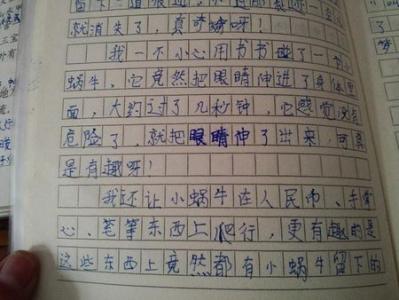 留下一道痕迹，
就消失了，真奇呀！
我一不小心用书书碰了一
蜗牛，它竟然把眼睛伸进了身体里
面，大约过了几秒钟，它感觉没
危险了，就把眼睛伸了出来，可真
是有趣呀！
我还让小蜗牛在人民币、手掌
心、笔等东西上爬行，更有趣的是
这些东西上竟然都有小蜗牛留下的